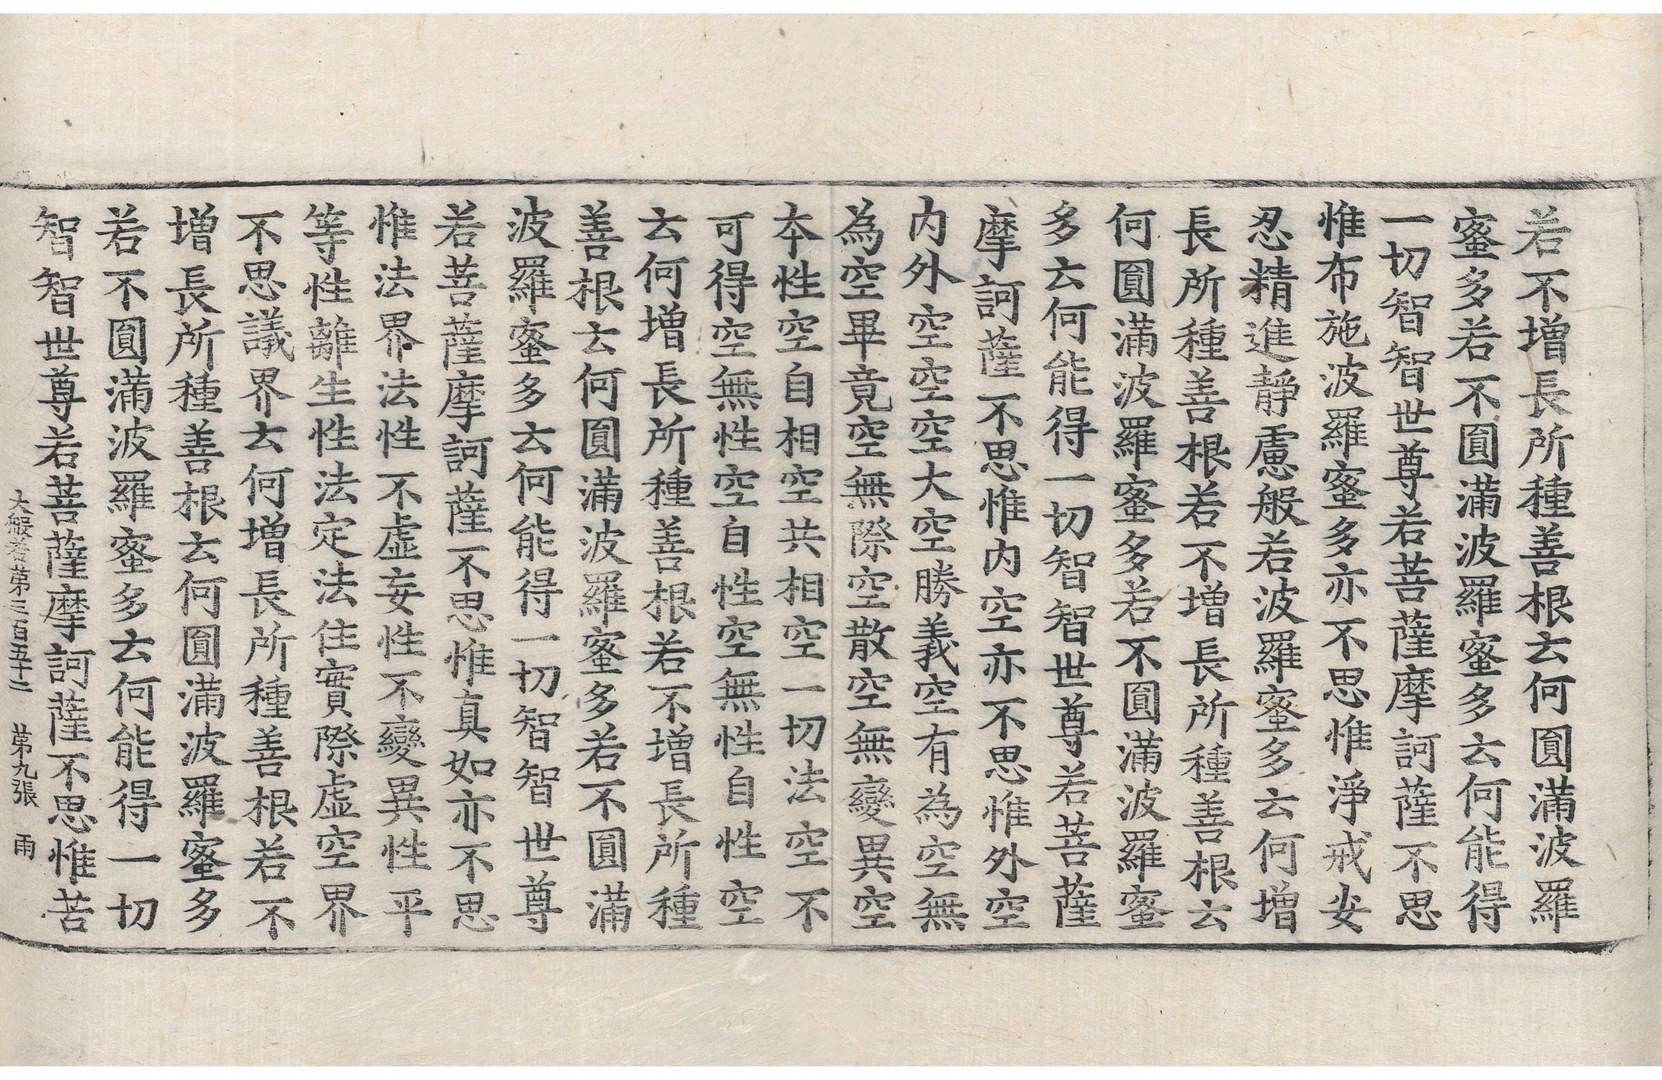 若不增長所種善根云何圓滿波羅
蜜多若不圓滿波羅蜜多云何能得
一切智智世尊若菩薩摩訶薩不思
惟布施波羅蜜多亦不思惟淨戒安
忍精進靜慮般若波羅蜜多云何增
長所種善根若不增長所種善根云
何圓滿波羅蜜多若不圓滿波羅蜜
多云何能得一切智智世尊若菩薩
摩訶薩不思惟内空亦不思惟外空
内外空空空大空勝義空有為空無
為空畢竟空無際空散空無變異空
本性空自相空共相空一切法空不
可得空無性空自性空無性自性空
云何增長所種善根若不增長所種
善根云何圓滿波羅蜜多若不圓滿
波羅蜜多云何能得一切智智世尊
若菩薩摩訶薩不思惟真如亦不思
惟法界法性不虛妄性不變異性平
等性離生性法定法住實際虛空界
不思議界云何增長所種善根若不
增長所種善根云何圓滿波羅蜜多
若不圓滿波羅蜜多云何能得一切
智智世尊若菩薩摩訶薩不思惟苦
大般若第三百五十二 第九張 雨